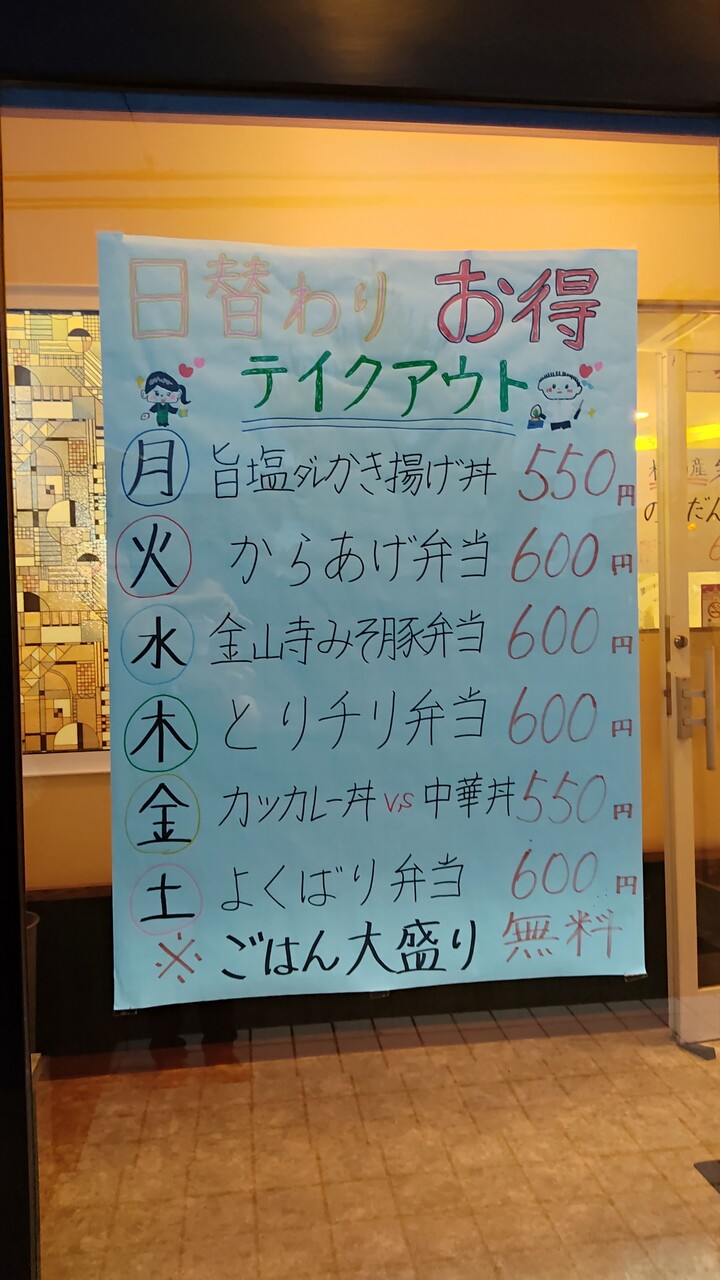 日替わり お得
テイクアウト
月 旨塩ダレかき揚げ丼 550円
火 からあげ弁当 600円
水 金山寺みそ豚弁当 600円
木 とりチリ弁当 600円
金 カツカレー丼 VS 中華丼 550円
土 よくばり弁当 600円
※ ごはん大盛り 無料